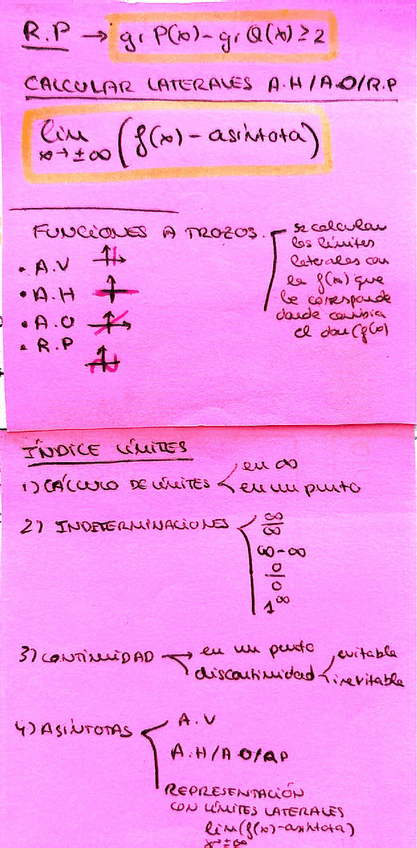 R.P → gr P(x) - gr Q(x) ≥ 2
CALCULAR LATERALES A.H/A.O/R.P
lim (f(x) - asíntota)
x→±∞
FUNCIONES A TROZOS.
se calculan
los límites
laterales con
la f(x) que
le corresponde
donde cambia
el dom(f(x)
• A.V
• A.H
• A.O
• R.P
ÍNDICE LÍMITES
1) CÁLCULO DE LÍMITES
en ∞
en un punto
2) INDETERMINACIONES
∞/∞
∞-∞
0/0
1^∞
3) CONTINUIDAD → en un punto
discontinuidad
evitable
inevitable
4) ASÍNTOTAS
A.V
A.H/A.O/RP
REPRESENTACIÓN
CON LÍMITES LATERALES
lim (f(x)-asíntota)
x→±∞